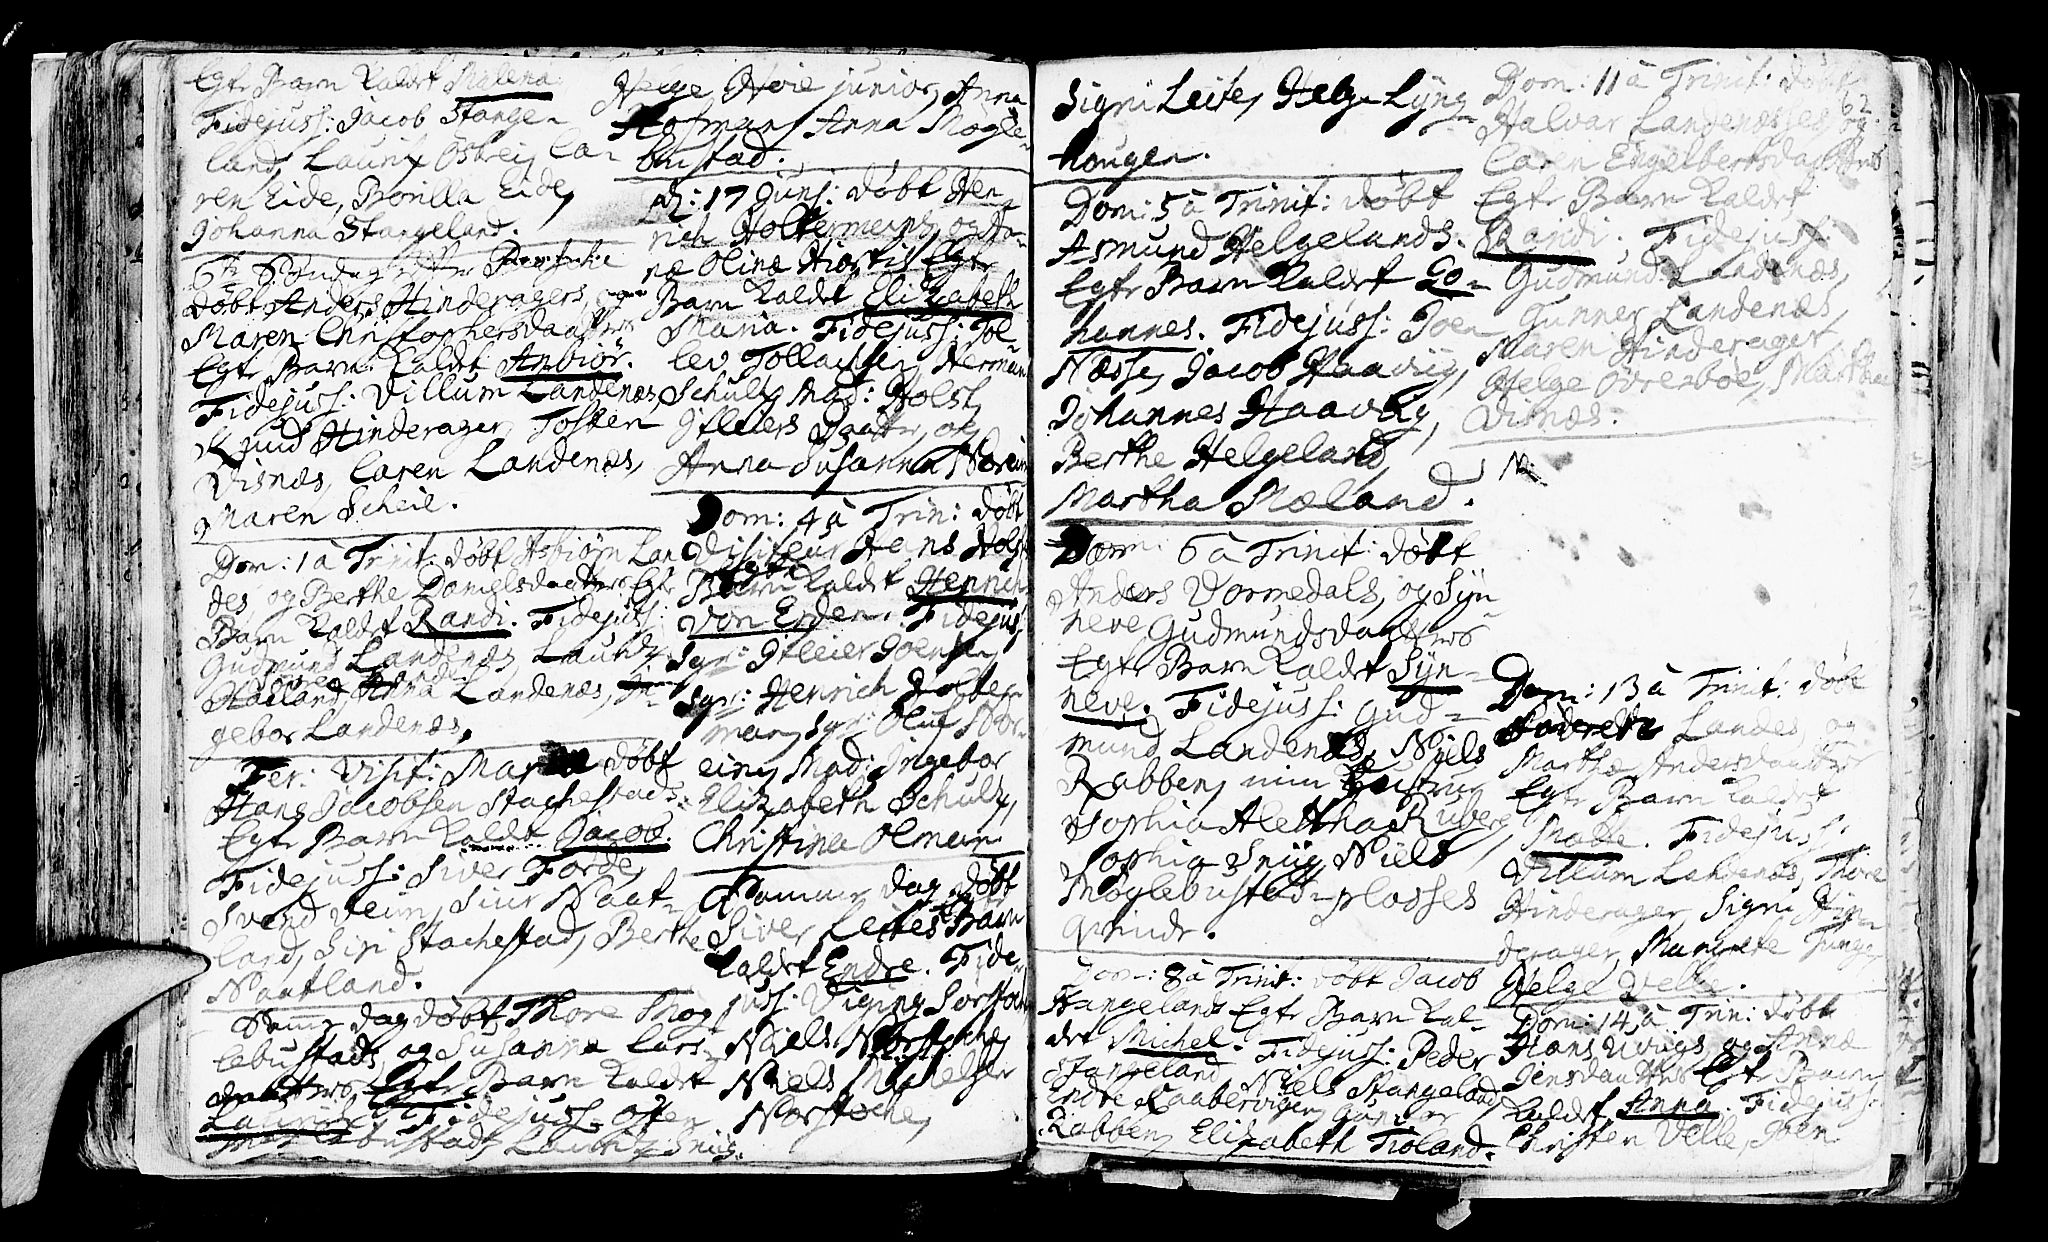 Egte Barn kaldet Malena
Fidejuss: Jacob Stange-
land, Lauritz Østreig, Ca-
ren Eide, Borilla Eide,
Johanna Stangeland.
6te Søndag efter Paaske
døbt Anders Hinderagers, og
Maren Christophersdaatters
Egte Barn kaldet Anbiør.
Fidejuss: Villum Landenæs,
Knud Hinderager, Tosten
Visnæs, Caren Landenæs,
Maren Scheie.
Dom: 1 à Trinit: døbt Asbiørn Lan
des, og Berthe Danielsdaatters Egte
Barn kaldet Randi. Fidejuss:
Gudmund Landenæs, Lauritz
Høiland, Anna Landenæs, In-
gebor Landenæs,
Fer: Visit: Mariæ døbt
Hans Jacobsen Stachestads
Egte Barn kaldet Jacob.
Fidejuss: Siver Førde,
Svend Veim, Siur Naat-
land, Siri Stachestad, Berthe
Naatland.
Samme dag døbt Thore Mog
lebustads og Susanna Lars-
daatters, Egte Barn kaldet
Lauritz. Fidejuss: Osten
Moglebustad, Lauritz Sniig.
Helge Høie junior, Anna
Hofman, Anna Møgle-
bustad.
d: 17 Junj: døbt Hen-
rich Holtermans, og An-
næ Olinæ Hiortis Egte
Barn kaldet Elizabeth
Maria. Fidejuss: Tol-
lev Tollachsen, Herman
Schultz, Mad: Holst,
Itleiers Daatter, og
Anna Susanna
Dom: 4 à Trin: døbt
Visiteur Hans Holst
Barn kaldet Henrich
von Erden. Fidejuss
Sgr: Itleier Joensen,
Sgr: Henrich Holter-
man, Sgr: Oluf Nor-
ein, Mad: Ingebor
Elizabeth Schultz,
Christina Olman
Samme dag døbt
Siver Leites Barn
kaldet Endre. Fide-
juss: Viging Sørstoche
Niels Nørstoche,
Niels Michelsen
Nørstoche,
Signi Leite, Helge Lyng-
hougen.
Dom: 5 à Trinit: døbt
Asmund Helgelands.
Egte Barn kaldet Jo-
hannes. Fidejuss: Joen
Næsse, Jacob Haavig,
Johannes Haavig,
Berthe Helgeland,
Martha Mæland.
Dom: 6 à Trinit: døbt
Anders Vormedals, og Syn-
neve Gudmundsdaatters
Egte Barn kaldet Syn-
neve. Fidejuss: Gud-
mund Landenæs, Niels
Rabben, min Hustru
Sophia Alettha Ruberg,
Sophia Sniig, Niels
Moglebustad-plasses
qvinde.
Dom: 8 à Trinit: døbt Jacob
Stangelands Egte Barn kal-
det Michel. Fidejuss: Peder
Stangeland, Niels Stangeland,
Endre Raabervigen, Gunder
Rabben, Elizabeth Tioland.
62.
Dom: 11 à Trinit: døbt
Halvar Landenæsses, og
Caren Engelbertsdaatters
Egte Barn kaldet
Randi. Fidejuss:
Gudmund Landenæs,
Gunner Landenæs,
Maren Hinderager,
Helge Øvrebøe, Martha
Visnæs.
N:
Dom: 13 à Trinit: døbt
Landes, og
Marthæ Andersdaatter
Egte Barn kaldet
Malle. Fidejuss:
Villum Landenæs, Thore
Hinderager, Signi Hin-
derager, Margrete
Helge Velle.
Dom: 14 à Trin: døbt
Hans Uviigs, og Annæ
Jensdaatters Egte Barn
kaldet Anna. Fidejuss:
Christen Velle, Joen